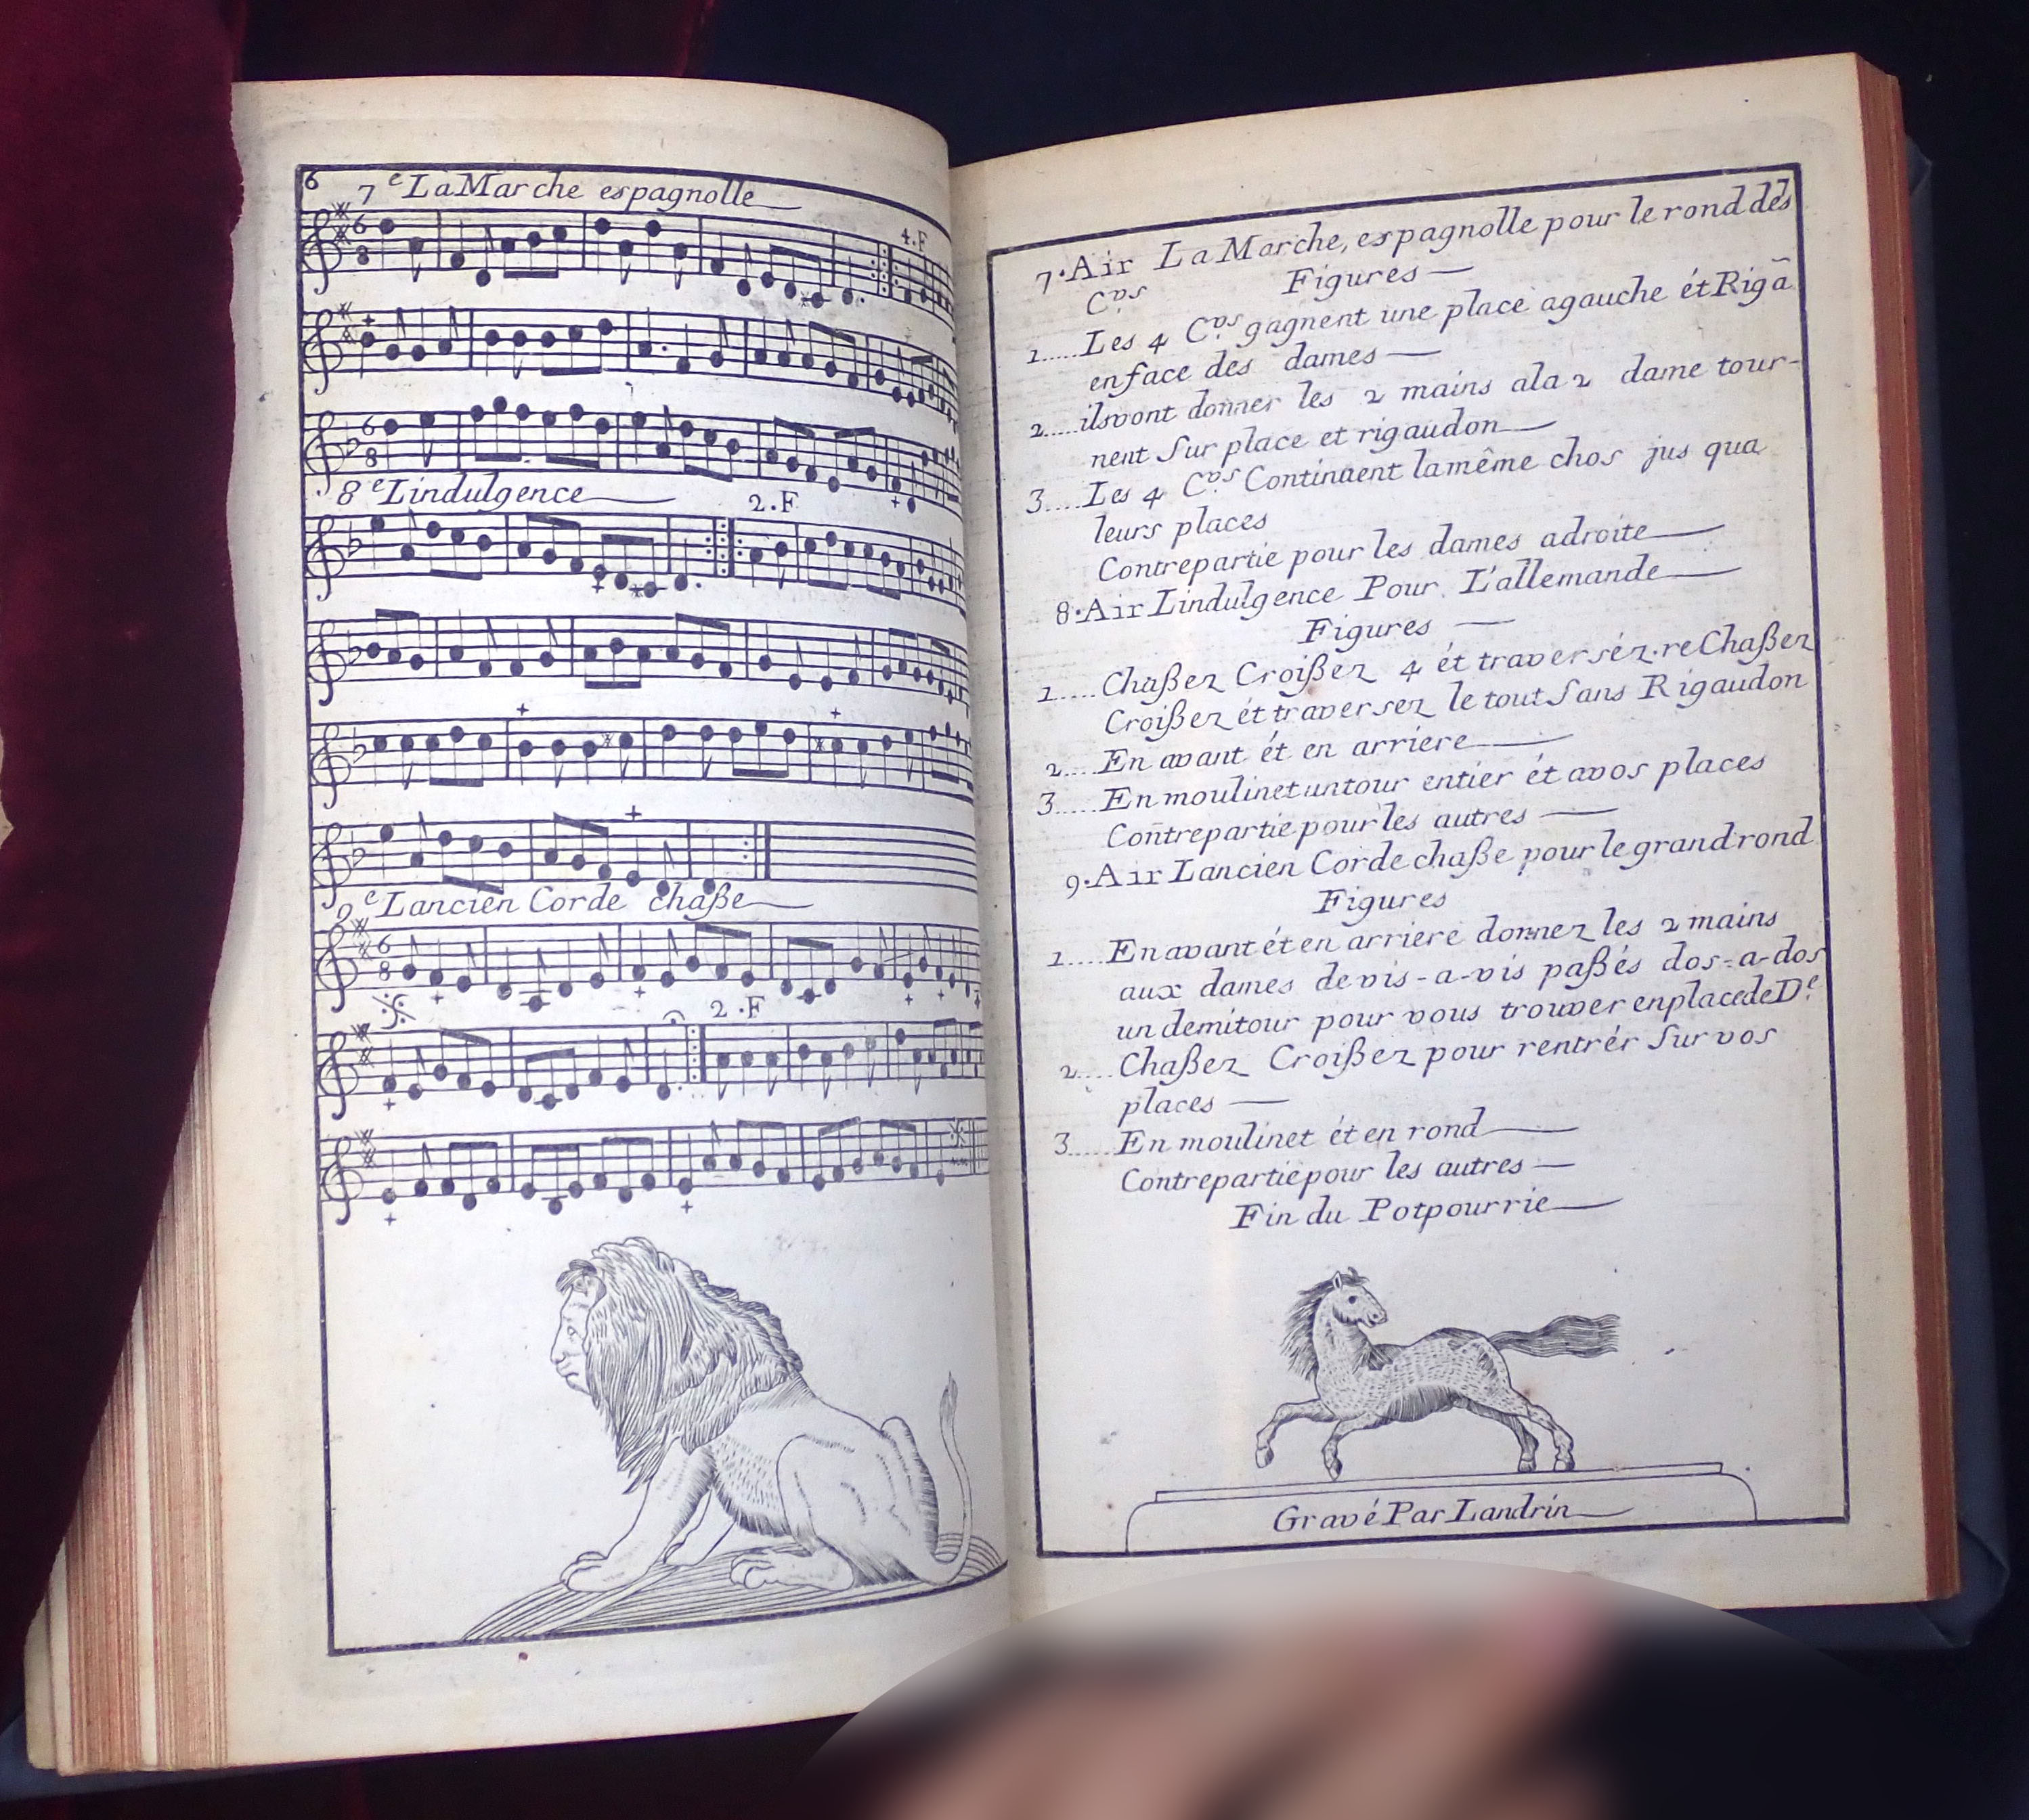 6
7e La Marche espagnolle
4.F
8e Lindulgence
2.F
9e Lancien Corde chaße
2.F
7
7.Air La Marche, espagnolle pour le rond des
C.vs Figures
1.....Les 4 C.vs gagnent une place agauche ét Rigā
enface des dames
2.....ilsvont donner les 2 mains ala 2 dame tour-
nent sur place et rigaudon
3.....Les 4 C.vs Continuent lamême chos jus qua
leurs places
Contrepartie pour les dames adroite
8.Air Lindulgence Pour L'allemande
Figures
1.....Chaßez Croißez 4 ét traverséz.reChaßez
Croißez ét traversez le tout sans Rigaudon
2.....En avant ét en arriere
3.....En moulinet untour entier ét avos places
Contrepartie pour les autres
9.Air Lancien Corde chaße pour le grand rond
Figures
1.....En avant ét en arriere donnez les 2 mains
aux dames de vis-a-vis paßés dos-a-dos
un demitour pour vous trouver enplacede D.e
2.....Chaßez Croißez pour rentrér sur vos
places
3.....En moulinet ét en rond
Contrepartie pour les autres
Fin du Potpourrie
Gravé Par Landrin